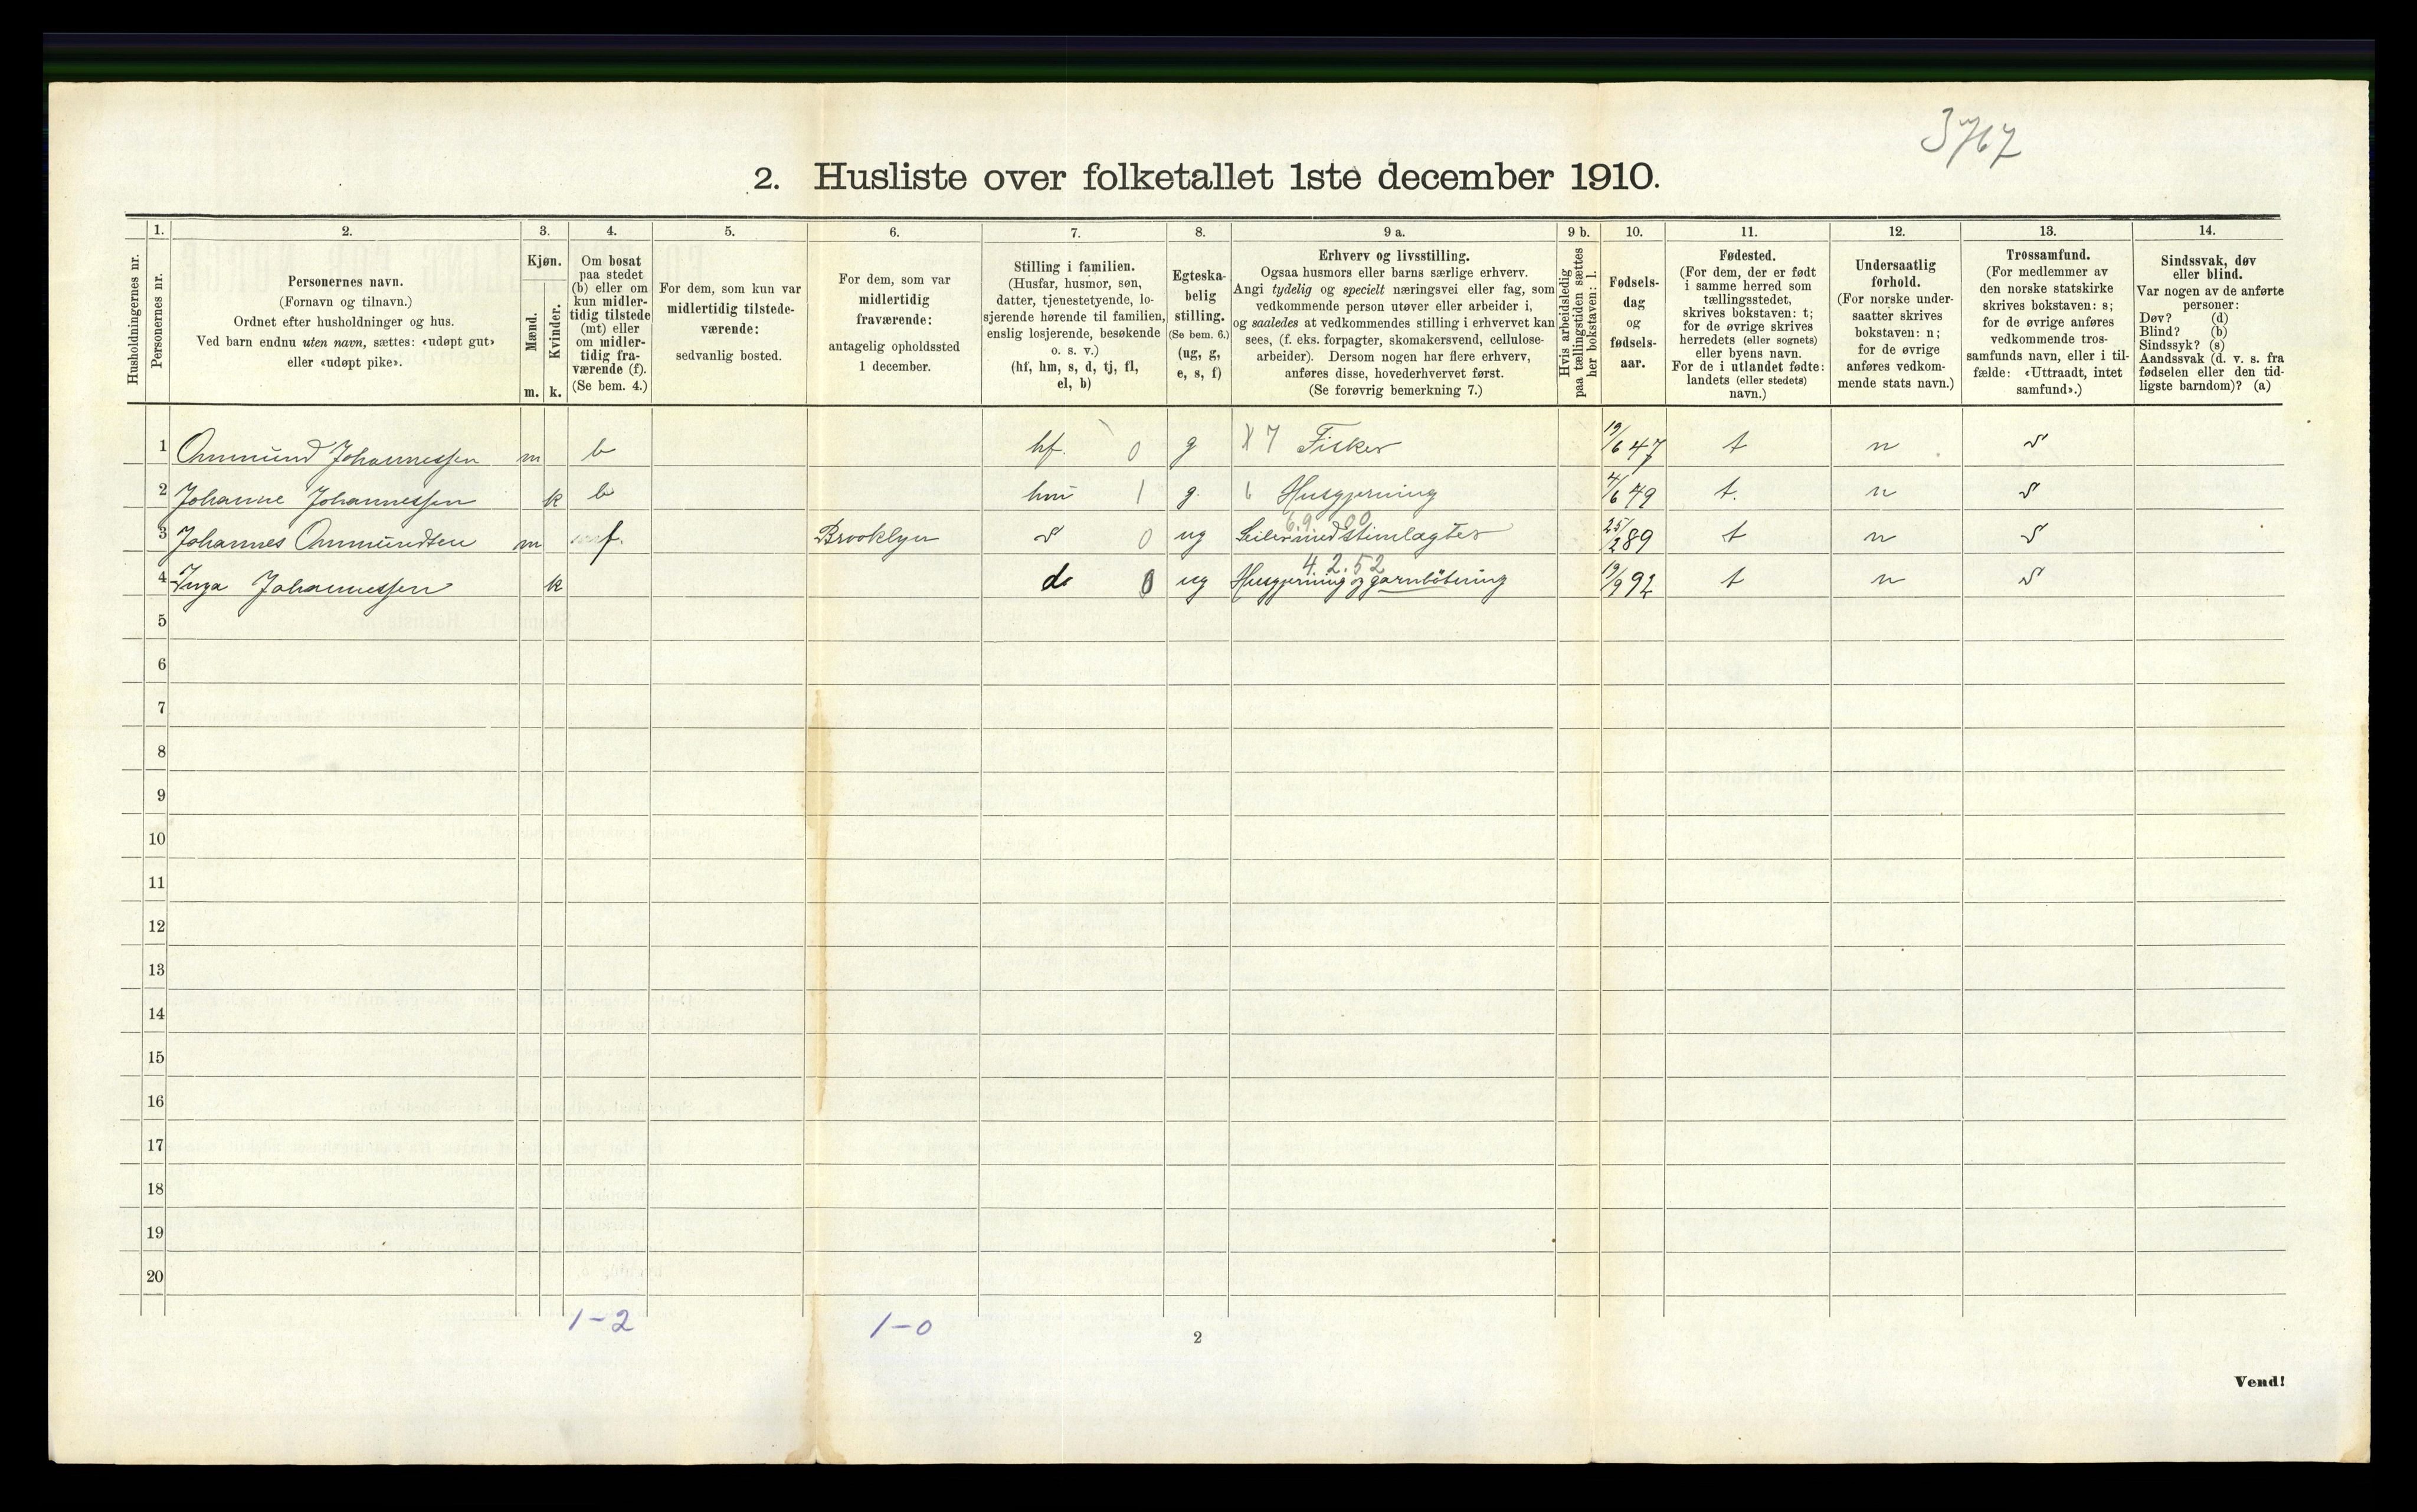 3767
2. Husliste over folketallet 1ste december 1910.
Husholdningernes nr.
1.
Personernes nr.
2.
Personernes navn.
(Fornavn og tilnavn.)
Ordnet efter husholdninger og hus.
Ved barn endnu uten navn, sættes: «udøpt gut»
eller «udøpt pike».
3.
Kjøn.
Mænd.
Kvinder.
m. k.
4.
Om bosat
paa stedet
(b) eller om
kun midler-
tidig tilstede
(mt) eller
om midler-
tidig fra-
værende (f).
(Se bem. 4.)
5.
For dem, som kun var
midlertidig tilstede-
værende:
sedvanlig bosted.
6.
For dem, som var
midlertidig
fraværende:
antagelig opholdssted
1 december.
7.
Stilling i familien.
(Husfar, husmor, søn,
datter, tjenestetyende, lo-
sjerende hørende til familien,
enslig losjerende, besøkende
o. s. v.)
(hf, hm, s, d, tj, fl,
el, b)
8.
Egteska-
belig
stilling.
(Se bem. 6.)
(ug, g,
e, s, f)
9 a.
Erhverv og livsstilling.
Ogsaa husmors eller barns særlige erhverv.
Angi tydelig og specielt næringsvei eller fag, som
vedkommende person utøver eller arbeider i,
og saaledes at vedkommendes stilling i erhvervet kan
sees, (f. eks. forpagter, skomakersvend, cellulose-
arbeider). Dersom nogen har flere erhverv,
anføres disse, hovederhvervet først.
(Se forøvrig bemerkning 7.)
9 b.
Hvis arbeidsledig
paa tællingstiden sættes
her bokstaven: l.
10.
Fødsels-
dag
og
fødsels-
aar.
11.
Fødested.
(For dem, der er født
i samme herred som
tællingsstedet,
skrives bokstaven: t;
for de øvrige skrives
herredets (eller sognets)
eller byens navn.
For de i utlandet fødte:
landets (eller stedets)
navn.)
12.
Undersaatlig
forhold.
(For norske under-
saatter skrives
bokstaven: n;
for de øvrige
anføres vedkom-
mende stats navn.)
13.
Trossamfund.
(For medlemmer av
den norske statskirke
skrives bokstaven: s;
for de øvrige anføres
vedkommende tros-
samfunds navn, eller i til-
fælde: «Uttraadt, intet
samfund».)
14.
Sindssvak, døv
eller blind.
Var nogen av de anførte
personer:
Døv? (d)
Blind? (b)
Sindssyk? (s)
Aandssvak (d. v. s. fra
fødselen eller den tid-
ligste barndom)? (a)
1 Ommund Johannessen m b hf. 0 g X 7 Fisker 19/6 47 t n s
2 Johanne Johannessen k b hm 1 g. 6 Husgjerning 4/6 49 t. n s
6.9.00
3 Johannes Ommundsen m f. Brooklyn s 0 ug 25/2 89 t n s
4.2.52
4 Inga Johannessen k d 0 ug Husgjerning og garnbötning 19/9 92 t n s
5
6
7
8
9
10
11
12
13
14
15
16
17
18
19
20
1-2 1-0
2
Vend!